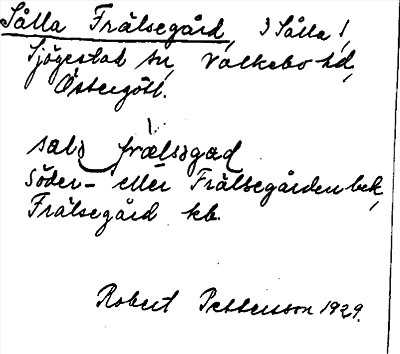 Sålla Frälsegård, I Sålla!,
Sjögestad sn, Valkebo hd,
Östergötl.
salə frælsəgad
Söder- eller Frälsegården bek,
Frälsegård kb.
Robert Pettersson 1929.